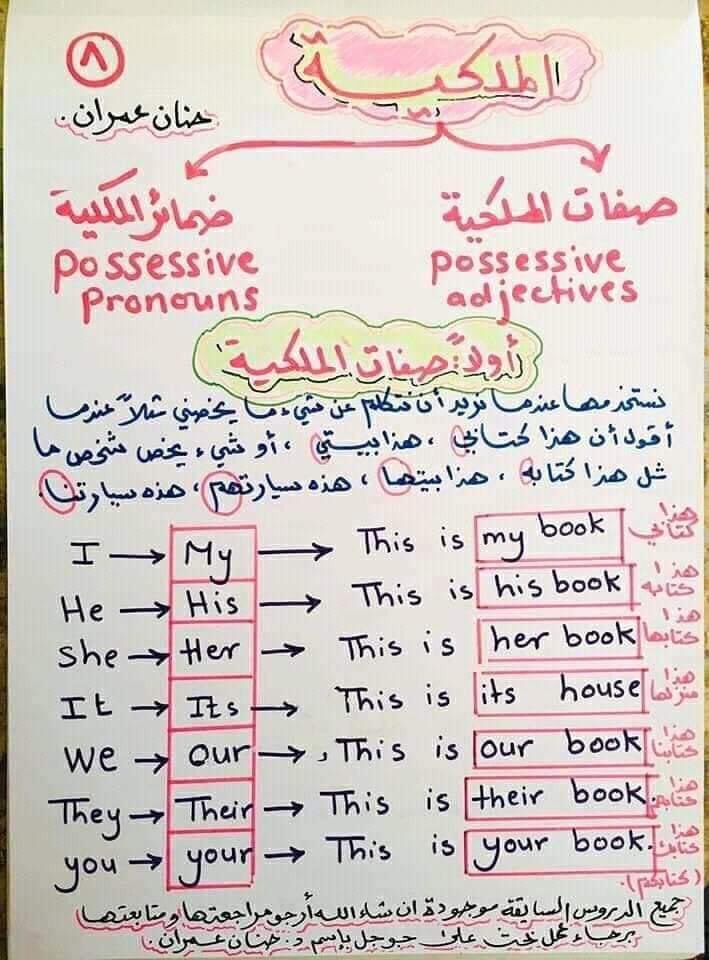 ٨
الملكية
حنان عمران.
صفات الملكية
possessive
adjectives
ضمائر الملكية
possessive
pronouns
أولاً: صفات الملكية
نستخدمها عندما نريد أن نتكلم عن شيء ما يخصني مثلاً عندما
أقول أن هذا كتابي ، هذا بيتي ، أو شيء يخص شخص ما
مثل هذا كتابه ، هذا بيتها ، هذه سيارتهم ، هذه سيارتنا.
I → My → This is my book هذا كتابي
He → His → This is his book هذا كتابه
She → Her → This is her book هذا كتابها
It → Its → This is its house هذا منزلها
We → Our → This is our book هذا كتابنا
They → Their → This is their book. هذا كتابهم
you → your → This is your book. هذا كتابك
(كتابكم).
جميع الدروس السابقة موجودة ان شاء الله أرجو مراجعتها ومتابعتها
برجاء عمل بحث على جوجل بإسم د. حنان عمران.